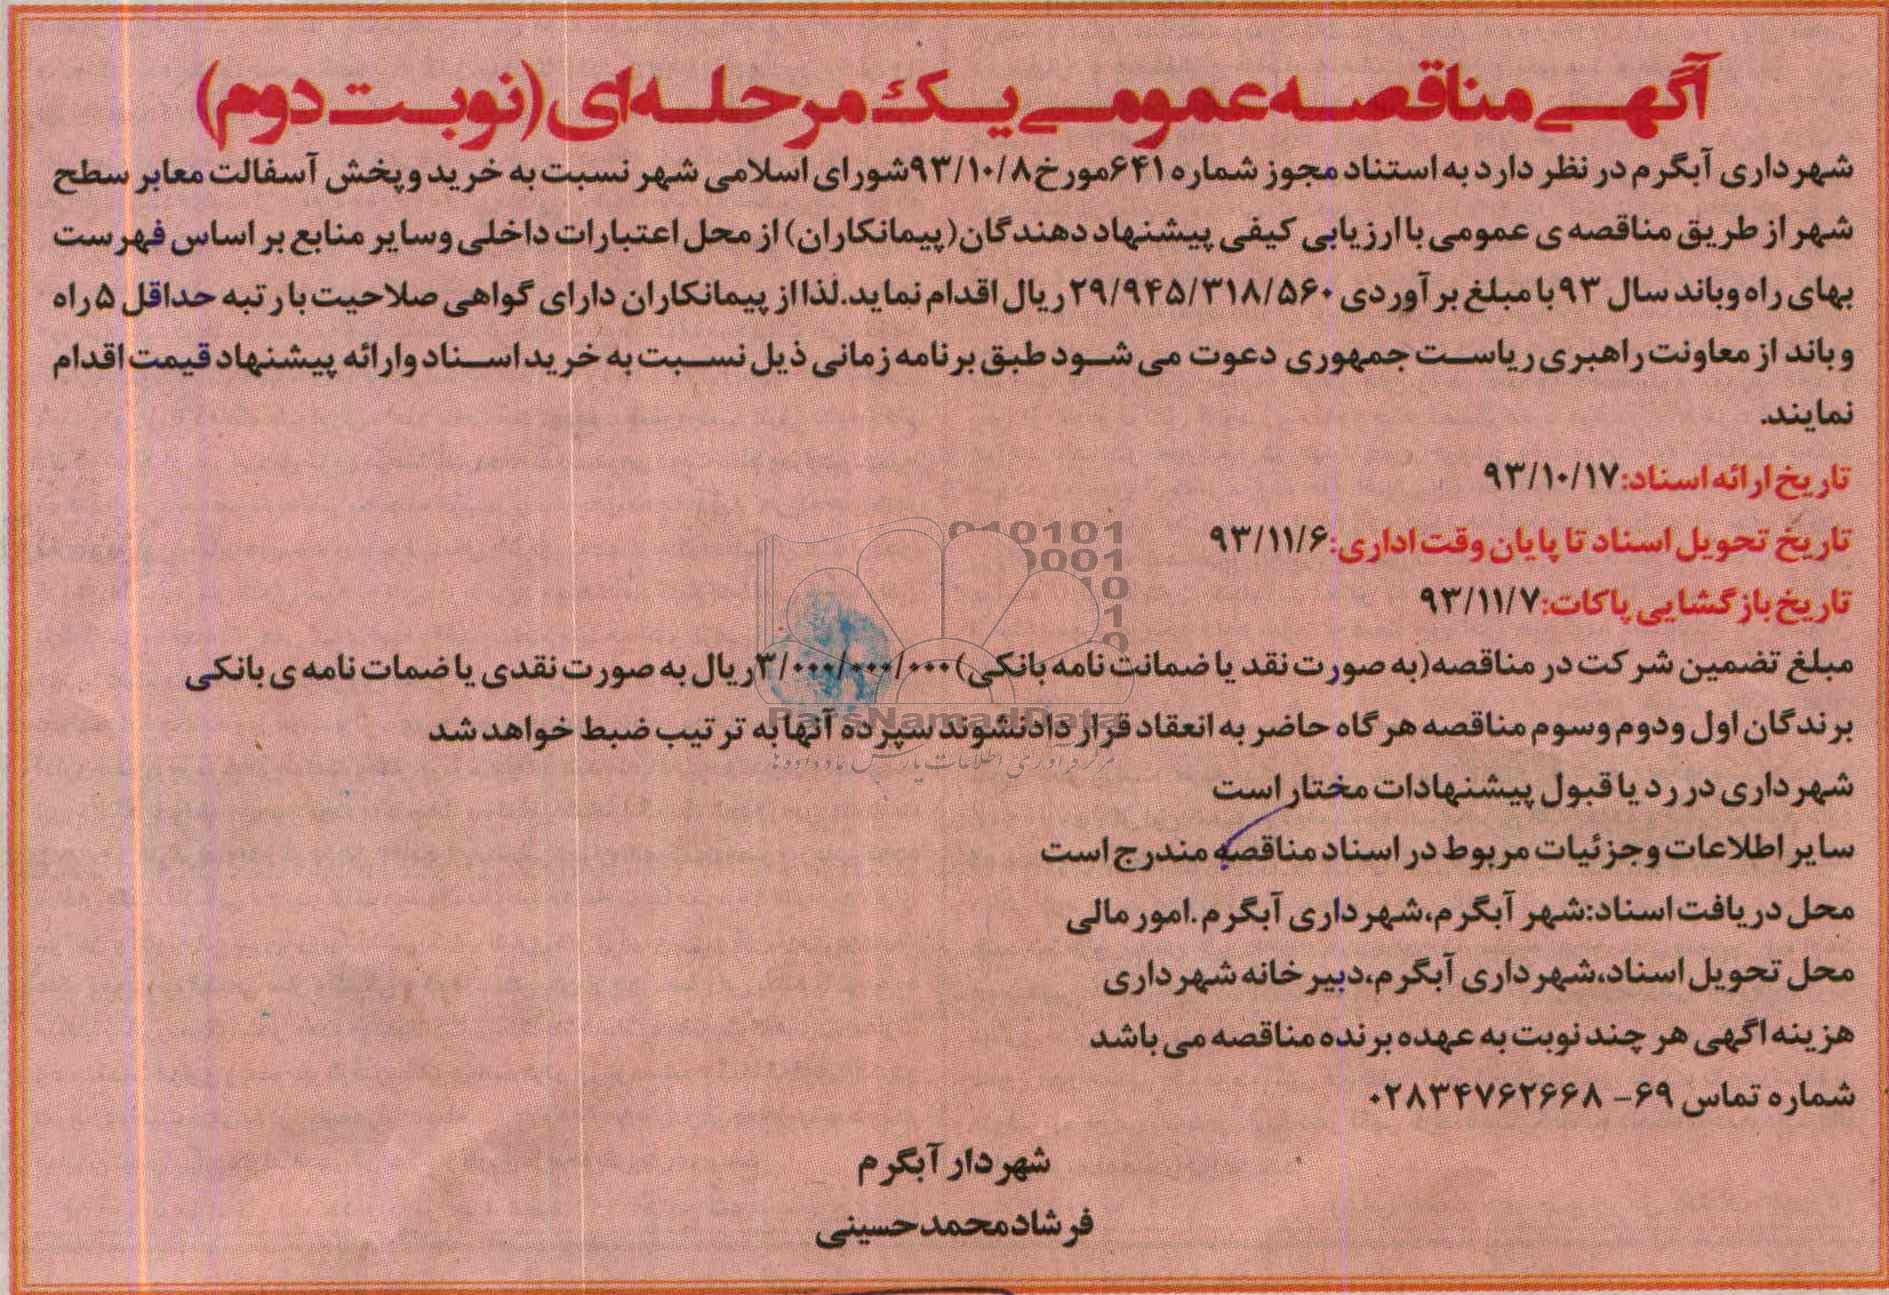 آگهی مناقصه عمومی یک مرحله‌ای (نوبت دوم)
شهرداری آبگرم در نظر دارد به استناد مجوز شماره ۶۴۱مورخ۹۳/۱۰/۸شورای اسلامی شهر نسبت به خرید و پخش آسفالت معابر سطح
شهر از طریق مناقصه ی عمومی با ارزیابی کیفی پیشنهاد دهندگان(پیمانکاران) از محل اعتبارات داخلی وسایر منابع بر اساس فهرست
بهای راه وباند سال ۹۳ با مبلغ بر آوردی ۲۹/۹۴۵/۳۱۸/۵۶۰ریال اقدام نماید.لذا از پیمانکاران دارای گواهی صلاحیت با رتبه حداقل ۵ راه
و باند از معاونت راهبری ریاست جمهوری دعوت می شود طبق برنامه زمانی ذیل نسبت به خرید اسناد وارائه پیشنهاد قیمت اقدام
نمایند.
تاریخ ارائه اسناد:۹۳/۱۰/۱۷
تاریخ تحویل اسناد تا پایان وقت اداری:۹۳/۱۱/۶
تاریخ بازگشایی پاکات:۹۳/۱۱/۷
مبلغ تضمین شرکت در مناقصه(به صورت نقد یا ضمانت نامه بانکی)۳/۰۰۰/۰۰۰/۰۰۰ریال به صورت نقدی یا ضمات نامه ی بانکی
برندگان اول ودوم وسوم مناقصه هر گاه حاضر به انعقاد قرار دادنشوند سپرده آنها به تر تیب ضبط خواهد شد
شهرداری در رد یا قبول پیشنهادات مختار است
سایر اطلاعات وجزئیات مربوط در اسناد مناقصه مندرج است
محل دریافت اسناد:شهر آبگرم،شهرداری آبگرم .امور مالی
محل تحویل اسناد،شهرداری آبگرم،دبیر خانه شهرداری
هزینه اگهی هر چند نوبت به عهده برنده مناقصه می باشد
شماره تماس ۶۹- ۰۲۸۳۴۷۶۲۶۶۸
شهردار آبگرم
فرشاد محمد حسینی
010101
0001
10
1
0
ParsNamadData
مرکز فرآوری اطلاعات پارس نماد داده ها